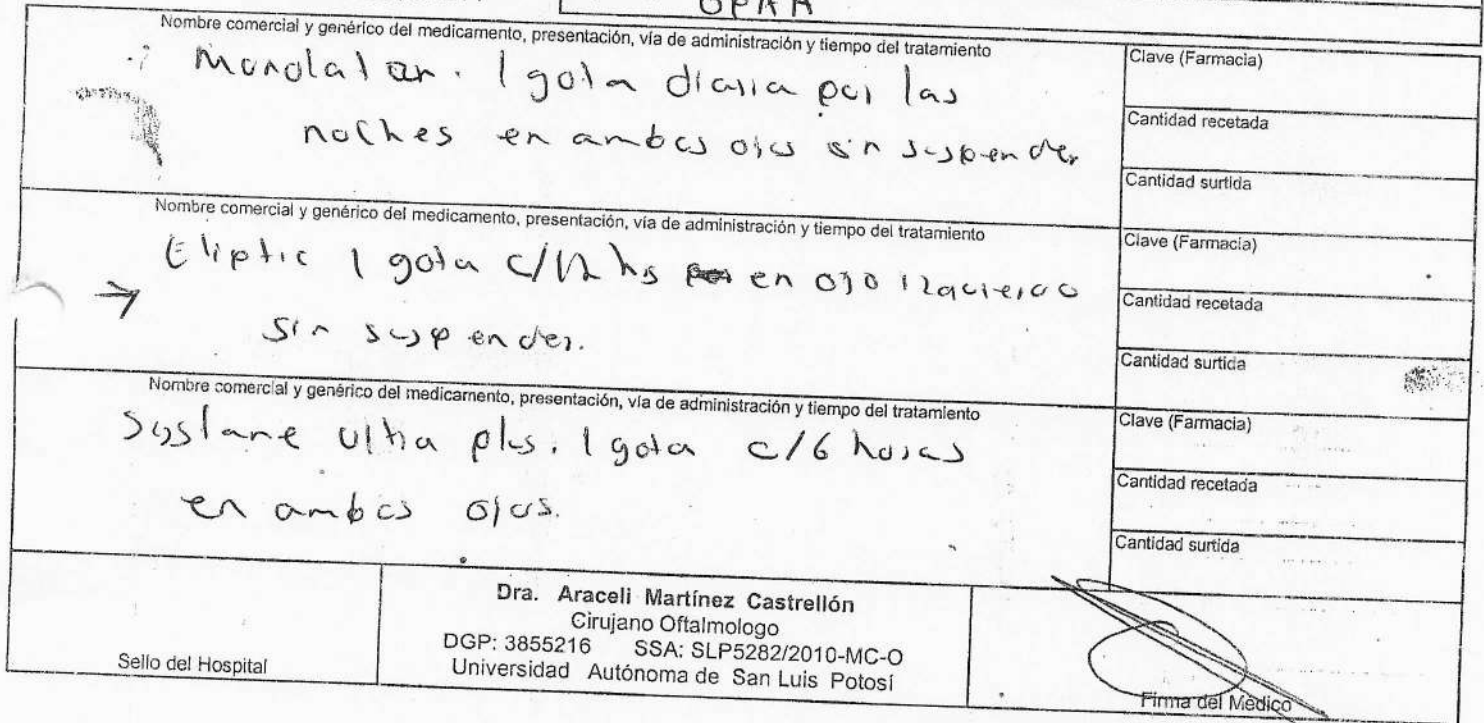 GPAA
Nombre comercial y genérico del medicamento, presentación, vía de administración y tiempo del tratamiento
Clave (Farmacia)
Monolatan. 1 gota diaria por las
noches en ambos ojos sin suspender
Cantidad recetada
Cantidad surtida
Nombre comercial y genérico del medicamento, presentación, vía de administración y tiempo del tratamiento
Clave (Farmacia)
Eliptic 1 gota c/12 hs en ojo izquierdo
sin suspender.
Cantidad recetada
Cantidad surtida
Nombre comercial y genérico del medicamento, presentación, vía de administración y tiempo del tratamiento
Clave (Farmacia)
Systane ultra plus. 1 gota c/6 horas
en ambos ojos.
Cantidad recetada
Cantidad surtida
Dra. Araceli Martínez Castrellón
Cirujano Oftalmologo
DGP: 3855216 SSA: SLP5282/2010-MC-O
Universidad Autónoma de San Luis Potosí
Sello del Hospital
Firma del Médico